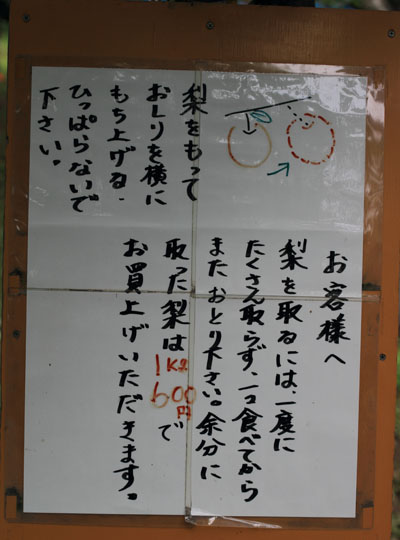 梨をもって
おしりを横に
もち上げる.
ひっぱらないで
下さい。
お客様へ
梨を取るには、一度に
たくさん取らず、一つ食べてから
またおとり下さい。余分に
取った梨は1Kg600円で
お買上げいただきます。